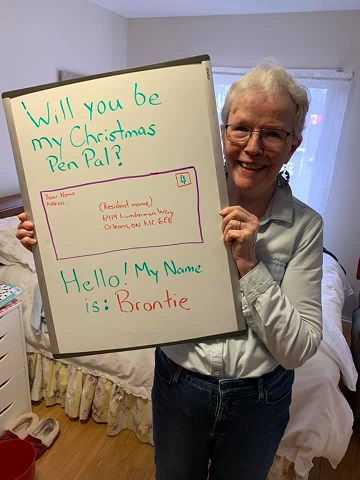 Will you be
my Christmas
Pen Pal?
Your Name
Address...
(Resident name)
6419 Lumberman Way
Orleans, ON K1C 6E8
Hello! My Name
is: Brontie